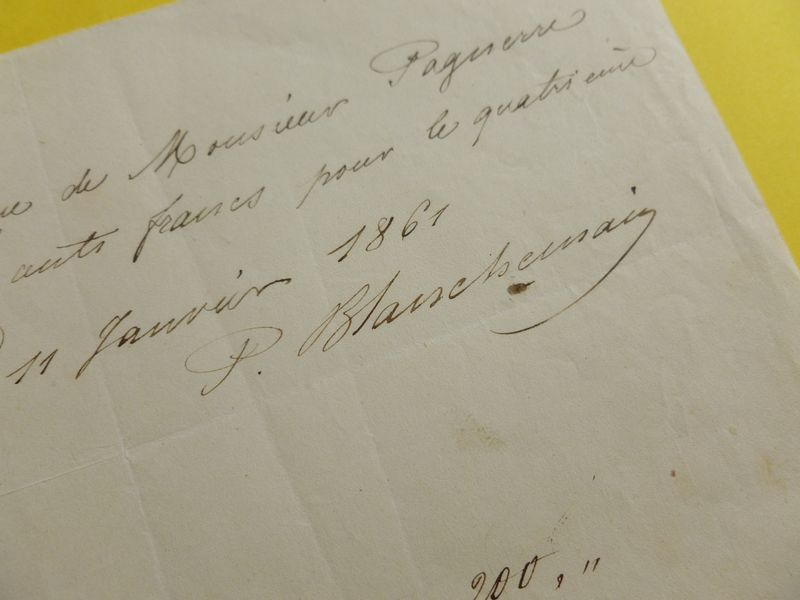 de Monsieur Pagnerre
francs pour le quatrième
11 Janvier 1861
P. Blanchemain
200, "